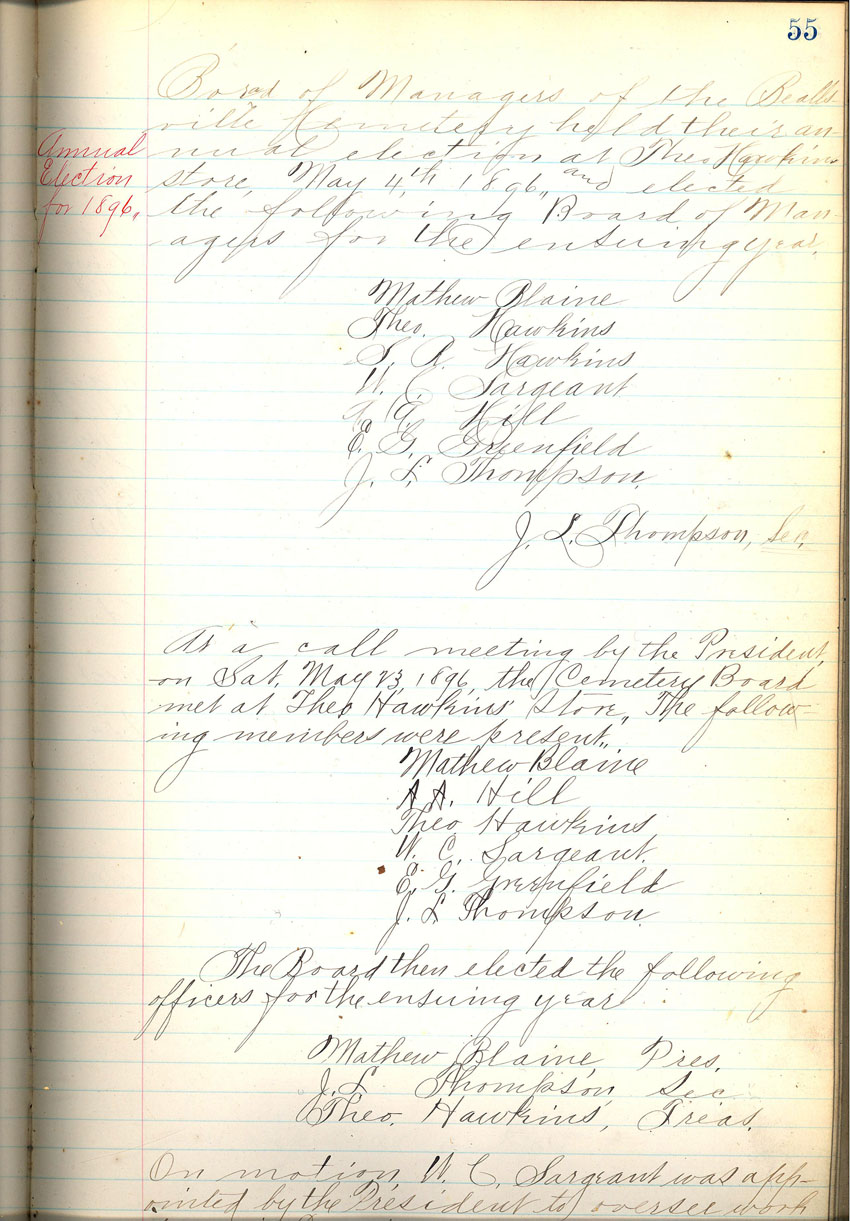 55
Board of Managers of the Bealls-
ville Cemetery held their an-
nual election at Theo Hawkins
store, May 4th, 1896, and elected
the following Board of Man-
agers for the ensuring year.
Annual
Election
for 1896,
Mathew Blaine
Theo. Hawkins
S. A. Hawkins
W. C. Sargeant
A. A. Hill
E. G. Greenfield
J. L. Thompson.
J. L. Thompson, Sec.
At a call meeting by the President,
on Sat. May 23, 1896, the Cemetery Board
met at Theo Hawkins' Store, The follow-
ing members were present.,
Mathew Blaine
A A. Hill
Theo Hawkins
W. C. Sargeant.
E. G. Greenfield
J. L Thompson.
The Board then elected the following
officers for the ensuing year
Mathew Blaine, Pres.
J. L Thompson Sec
Theo. Hawkins, Treas.
On motion W. C. Sargeant was app-
ointed by the President to oversee work